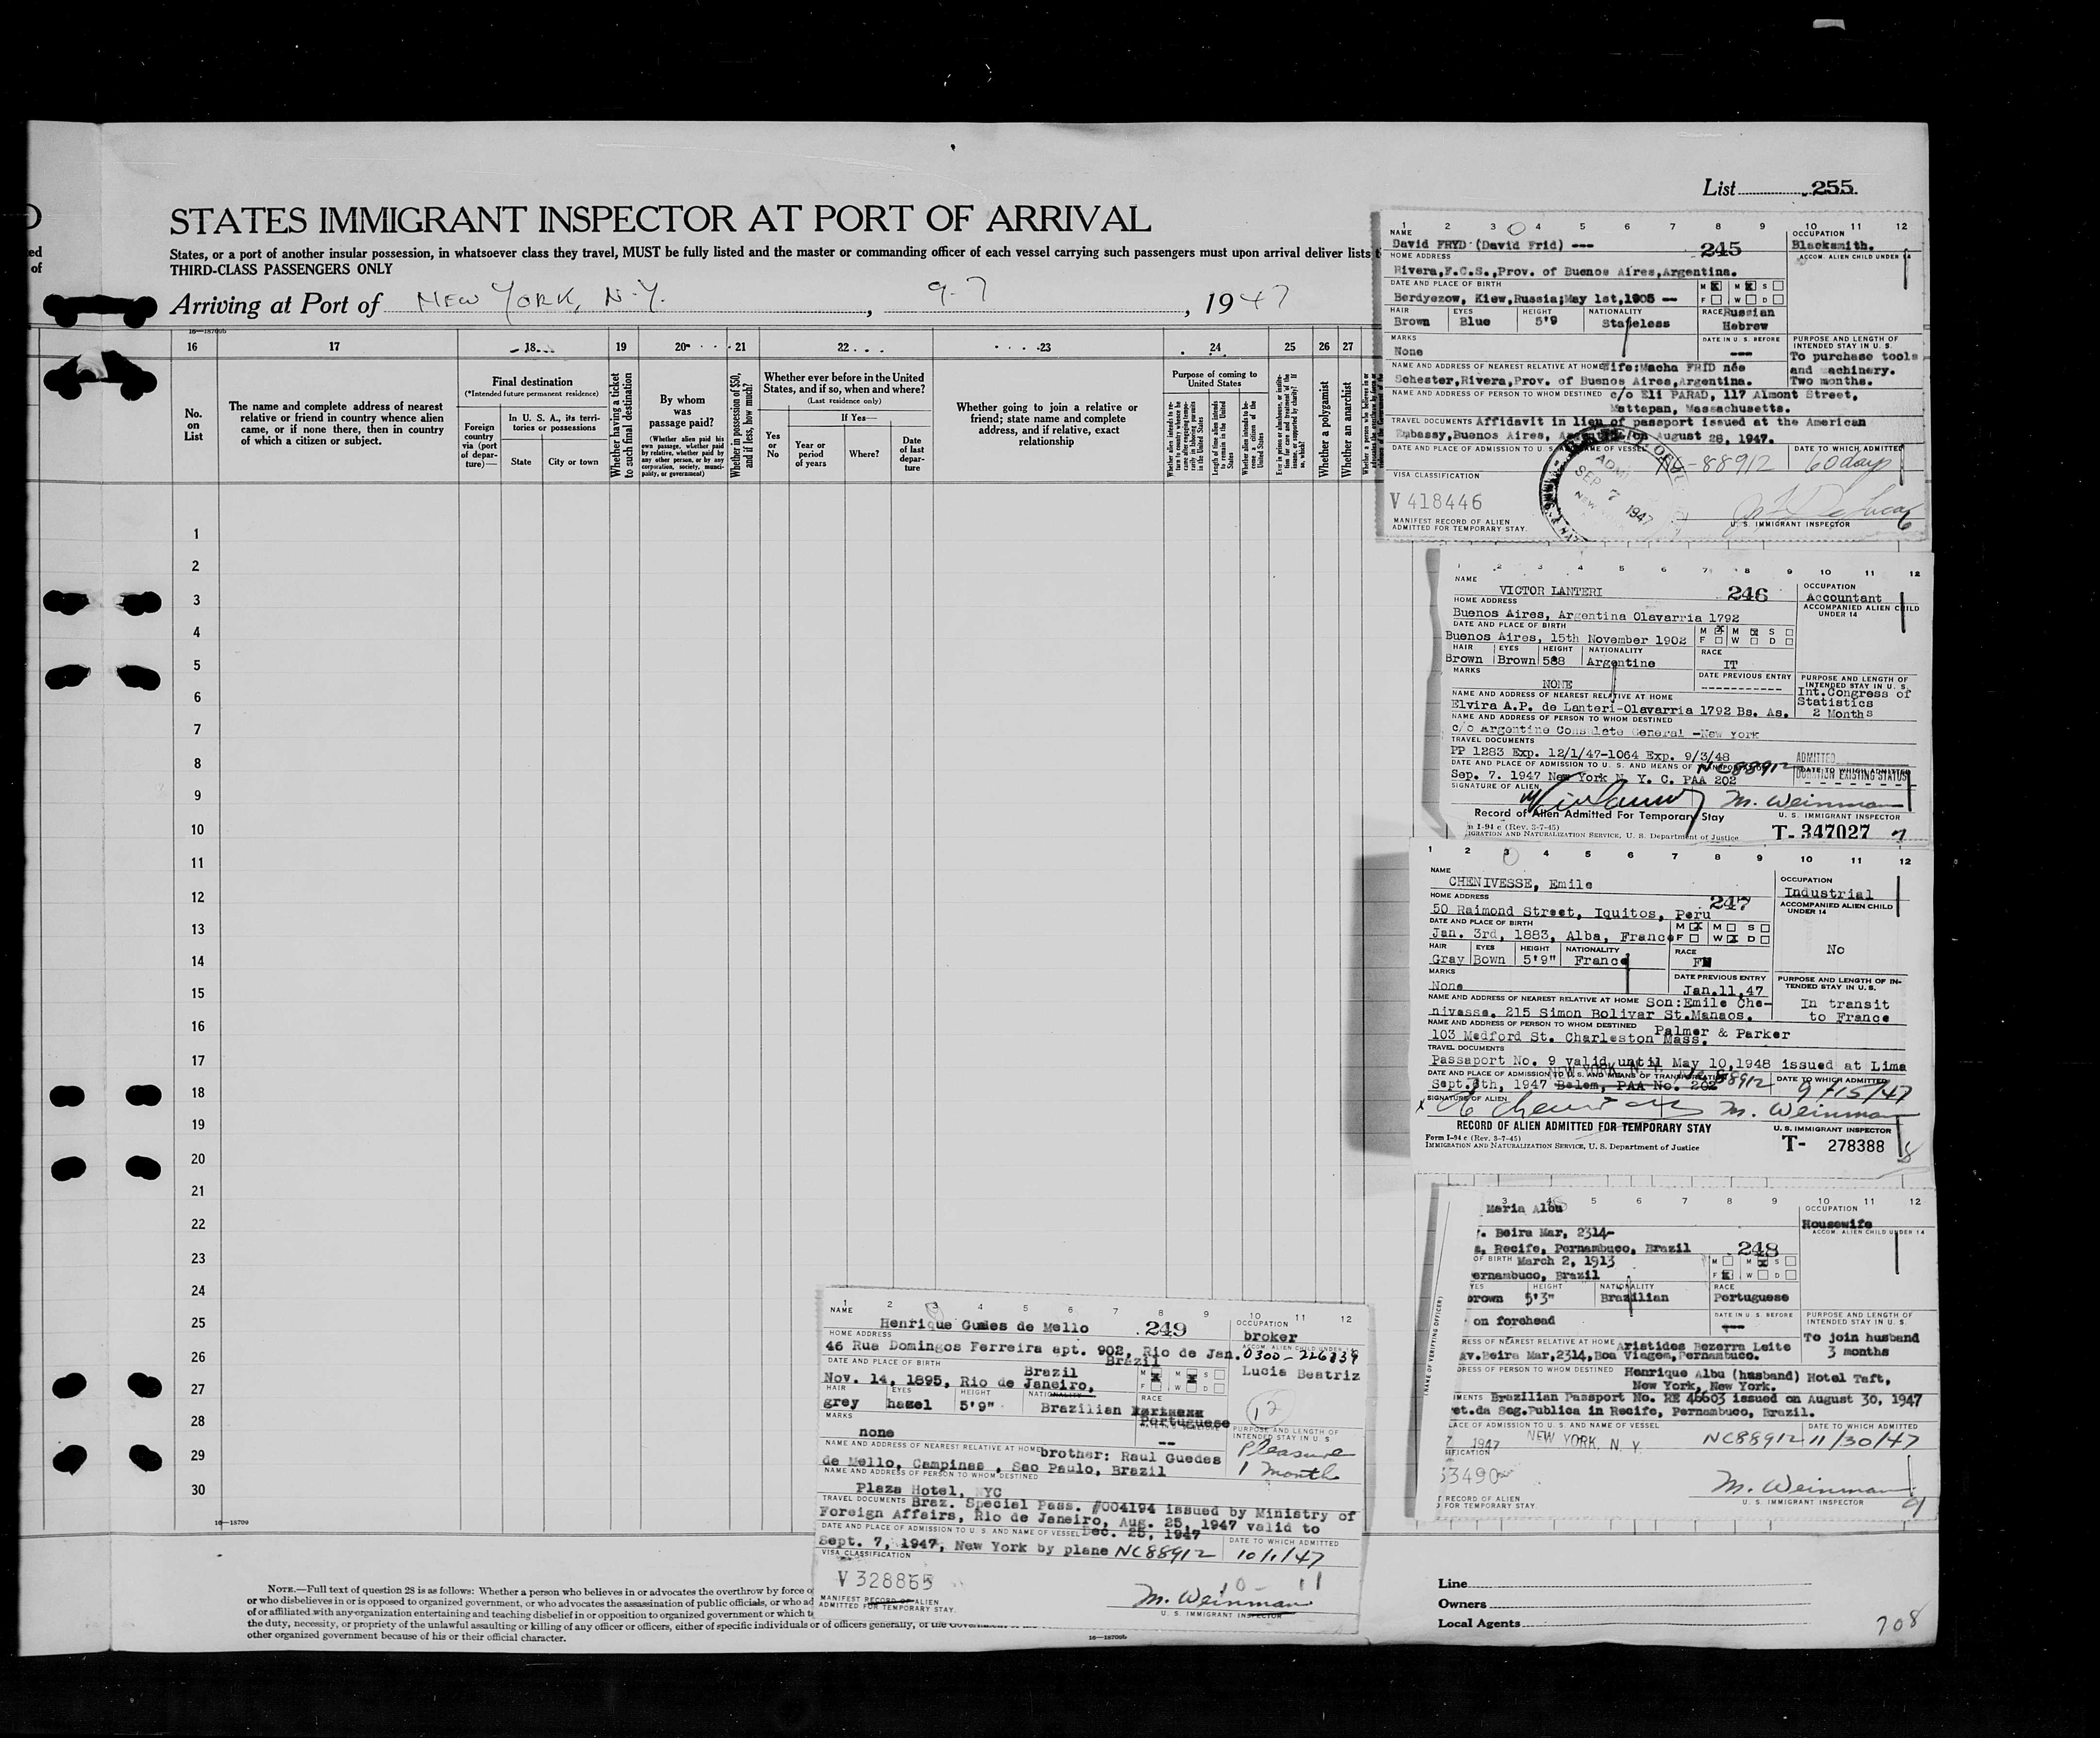 List 255
STATES IMMIGRANT INSPECTOR AT PORT OF ARRIVAL
States, or a port of another insular possession, in whatsoever class they travel, MUST be fully listed and the master or commanding officer of each vessel carrying such passengers must upon arrival deliver lists
THIRD-CLASS PASSENGERS ONLY
Arriving at Port of NEW YORK, N.Y. , 9-7 , 1947
16 17 18 19 20 21 22 23 24 25 26 27
No. on List
The name and complete address of nearest
relative or friend in country whence alien
came, or if none there, then in country
of which a citizen or subject.
Final destination
(*Intended future permanent residence)
Foreign country via (port of departure)—
In U. S. A., its territories or possessions
State
City or town
Whether having a ticket to such final destination
By whom was passage paid?
(Whether alien paid his own passage, whether paid by relative, whether paid by any other person, or by any corporation, society, municipality, or government)
Whether in possession of $50, and if less, how much?
Whether ever before in the United States, and if so, when and where?
(Last residence only)
Yes or No
If Yes—
Year or period of years
Where?
Date of last departure
Whether going to join a relative or
friend; state name and complete
address, and if relative, exact
relationship
Purpose of coming to United States
Whether a polygamist
Whether an anarchist
1
2
3
4
5
6
7
8
9
10
11
12
13
14
15
16
17
18
19
20
21
22
23
24
25
26
27
28
29
30
16—18709
NOTE.—Full text of question 28 is as follows: Whether a person who believes in or advocates the overthrow by force o
or who disbelieves in or is opposed to organized government, or who advocates the assassination of public officials, or who ad
of or affiliated with any organization entertaining and teaching disbelief in or opposition to organized government or which t
the duty, necessity, or propriety of the unlawful assaulting or killing of any officer or officers, either of specific individuals or of officers generally, of the
other organized government because of his or their official character.
16—18709b
1 2 3 4 5 6 7 8 9 10 11 12
NAME
David FRYD (David Frid) ---
245
OCCUPATION
Blacksmith.
HOME ADDRESS
ACCOM. ALIEN CHILD UNDER 14
Rivera,F.C.S.,Prov. of Buenos Aires,Argentina.
DATE AND PLACE OF BIRTH
M X M X S
F W D
Berdyezow, Kiew,Russia;May 1st,1905 --
HAIR EYES HEIGHT NATIONALITY RACE
Brown Blue 5'9 Stateless Russian Hebrew
MARKS
None
DATE IN U. S. BEFORE
---
PURPOSE AND LENGTH OF INTENDED STAY IN U. S.
To purchase tools
and machinery.
Two months.
NAME AND ADDRESS OF NEAREST RELATIVE AT HOME Wife:Macha FRID née
Schester,Rivera,Prov. of Buenos Aires,Argentina.
NAME AND ADDRESS OF PERSON TO WHOM DESTINED c/o Eli PARAD, 117 Almont Street,
Mattapan, Massachusetts.
TRAVEL DOCUMENTS Affidavit in lieu of passport issued at the American
Embassy,Buenos Aires, August 28, 1947.
DATE AND PLACE OF ADMISSION TO U. S. NAME OF VESSEL
88912
DATE TO WHICH ADMITTED
60 days
VISA CLASSIFICATION
V 418446
SEP 7 1947
MANIFEST RECORD OF ALIEN
ADMITTED FOR TEMPORARY STAY.
U. S. IMMIGRANT INSPECTOR
6
1 2 3 4 5 6 7 8 9 10 11 12
NAME
VICTOR LANTERI
246
OCCUPATION
Accountant
HOME ADDRESS
ACCOMPANIED ALIEN CHILD UNDER 14
Buenos Aires, Argentina Olavarria 1792
DATE AND PLACE OF BIRTH
M X M X S
F W D
Buenos Aires, 15th November 1902
HAIR EYES HEIGHT NATIONALITY RACE
Brown Brown 588 Argentine IT
MARKS
NONE
DATE PREVIOUS ENTRY
-----------
PURPOSE AND LENGTH OF INTENDED STAY IN U. S.
Int.Congress of
Statistics
2 Months
NAME AND ADDRESS OF NEAREST RELATIVE AT HOME
Elvira A.P. de Lanteri-Olavarria 1792 Bs. As.
NAME AND ADDRESS OF PERSON TO WHOM DESTINED
c/o Argentine Consulate General -New York
TRAVEL DOCUMENTS
PP 1283 Exp. 12/1/47-1064 Exp. 9/3/48
ADMITTED
DATE AND PLACE OF ADMISSION TO U. S. AND MEANS OF
NC88912
Sep. 7. 1947 New York N. Y. C. PAA 202
EXISTING STATUS
SIGNATURE OF ALIEN
M. Weinman
Record of Alien Admitted For Temporary Stay
U. S. IMMIGRANT INSPECTOR
I-94 c (Rev. 3-7-45)
IGRATION AND NATURALIZATION SERVICE, U. S. Department of Justice
T- 347027
7
1 2 3 4 5 6 7 8 9 10 11 12
NAME
CHENIVESSE, Emile
OCCUPATION
Industrial
HOME ADDRESS
247
50 Raimond Street, Iquitos, Peru
ACCOMPANIED ALIEN CHILD UNDER 14
No
DATE AND PLACE OF BIRTH
M X M S
F W X D
Jan. 3rd, 1883, Alba, France
HAIR EYES HEIGHT NATIONALITY RACE
Gray Bown 5'9" France
MARKS
None
DATE PREVIOUS ENTRY
Jan.11,47
PURPOSE AND LENGTH OF INTENDED STAY IN U. S.
In transit
to France
NAME AND ADDRESS OF NEAREST RELATIVE AT HOME Son:Emile Che-
nivesse, 215 Simon Bolivar St.Manaos.
NAME AND ADDRESS OF PERSON TO WHOM DESTINED Palmer & Parker
103 Medford St. Charleston Mass.
TRAVEL DOCUMENTS
Passaport No. 9 valid until May 10,1948 issued at Lima
DATE AND PLACE OF ADMISSION TO U. S. AND MEANS OF TRANSPORTATION
NEW YORK, N. Y.
DATE TO WHICH ADMITTED
Sept.6th, 1947 Belem, PAA No. 202 88912 9/15/47
SIGNATURE OF ALIEN
M. Weinman
RECORD OF ALIEN ADMITTED FOR TEMPORARY STAY
U. S. IMMIGRANT INSPECTOR
Form I-94 c (Rev. 3-7-45)
IMMIGRATION AND NATURALIZATION SERVICE, U. S. Department of Justice
T- 278388
8
3 4 5 6 7 8 9 10 11 12
Maria Albu
OCCUPATION
Housewife
ACCOM. ALIEN CHILD UNDER 14
. Beira Mar, 2314-
, Recife, Pernambuco, Brazil
248
OF BIRTH March 2, 1913
ernambuco, Brazil
M M X S
F X W D
YES HEIGHT NATIONALITY RACE
brown 5'3" Brazilian Portuguese
on forehead
DATE IN U. S. BEFORE
PURPOSE AND LENGTH OF INTENDED STAY IN U. S.
To join husband
3 months
RESS OF NEAREST RELATIVE AT HOME Aristides Bezerra Leite
Av.Beira Mar,2314,Boa Viagem,Pernambuco.
DRESS OF PERSON TO WHOM DESTINED Henrique Albu (husband) Hotel Taft,
New York, New York.
MENTS Brazilian Passport No. RE 46603 issued on August 30, 1947
et.da Seg.Publica in Recife, Pernambuco, Brazil.
LACE OF ADMISSION TO U. S. AND NAME OF VESSEL
DATE TO WHICH ADMITTED
7 1947 NEW YORK, N. Y. NC88912 11/30/47
SIFICATION
53490
M. Weinman
T RECORD OF ALIEN
FOR TEMPORARY STAY.
U. S. IMMIGRANT INSPECTOR
9
(NAME OF VERIFYING OFFICER)
1 2 3 4 5 6 7 8 9 10 11 12
NAME
Henrique Guedes de Mello
249
OCCUPATION
broker
HOME ADDRESS
ACCOM. ALIEN CHILD UNDER 14
46 Rua Domingos Ferreira apt. 902, Rio de Jan.
Brazil
0300-226839
Lucia Beatriz
12
DATE AND PLACE OF BIRTH
Brazil
M X M X S
F W D
Nov. 14, 1895, Rio de Janeiro,
HAIR EYES HEIGHT NATIONALITY RACE
grey hazel 5'9" Brazilian
Portuguese
MARKS
none
--
PURPOSE AND LENGTH OF INTENDED STAY IN U. S
Pleasure
1 month
NAME AND ADDRESS OF NEAREST RELATIVE AT HOME brother: Raul Guedes
de Mello, Campinas , Sao Paulo, Brazil
NAME AND ADDRESS OF PERSON TO WHOM DESTINED
Plaza Hotel, NYC
TRAVEL DOCUMENTS Braz. Special Pass. #004194 issued by Ministry of
Foreign Affairs, Rio de Janeiro, Aug. 25, 1947 valid to
DATE AND PLACE OF ADMISSION TO U. S. AND NAME OF VESSEL Dec. 25, 1947
DATE TO WHICH ADMITTED
Sept. 7, 1947, New York by plane NC88912 10/1/47
VISA CLASSIFICATION
V 328865
10- 11
M. Weinman
MANIFEST RECORD OF ALIEN
ADMITTED FOR TEMPORARY STAY.
U. S. IMMIGRANT INSPECTOR
Line
Owners
Local Agents
708